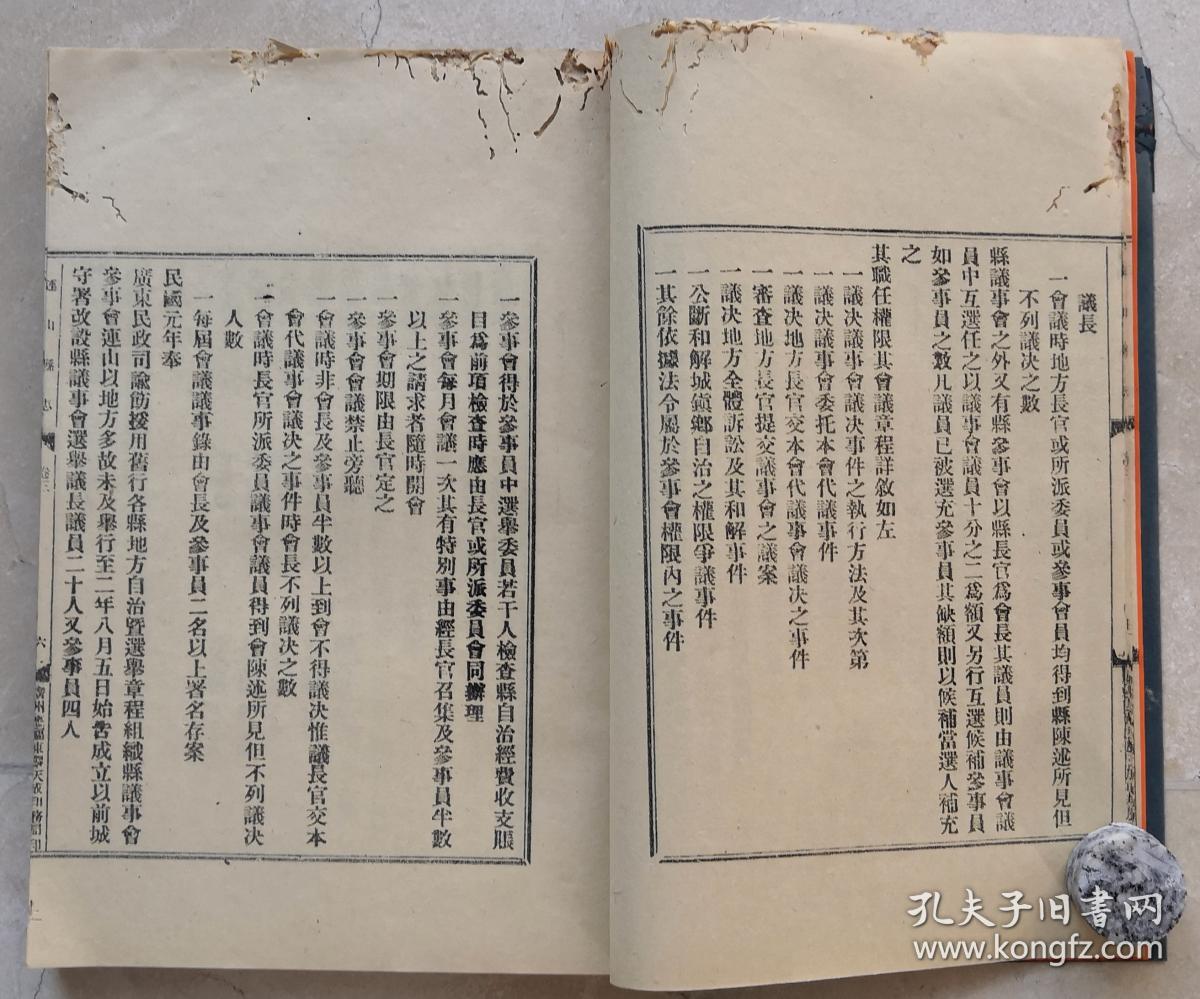 議長
一會議時地方長官或所派委員或參事會員均得到縣陳述所見但
不列議决之數
縣議事會之外又有縣參事會以縣長官爲會長其議員則由議事會議
員中互選任之以議事會議員十分之二爲額又另行互選候補參事員
如參事員之數凡議員已被選充參事員其缺額則以候補當選人補充
之
其職任權限其會議章程詳敘如左
一議决議事會議决事件之執行方法及其次第
一議决議事會委托本會代議事件
一議决地方長官交本會代議事會議决之事件
一審查地方長官提交議事會之議案
一議决地方全體訴訟及其和解事件
一公斷和解城鎮鄉自治之權限爭議事件
一其餘依據法令屬於參事會權限內之事件
一參事會得於參事員中選舉委員若干人檢查縣自治經費收支賬
目爲前項檢查時應由長官或所派委員會同辦理
一參事會每月會議一次其有特別事由經長官召集及參事員半數
以上之請求者隨時開會
一參事會期限由長官定之
一參事會會議禁止旁聽
一會議時非會長及參事員半數以上到會不得議决惟議長官交本
會代議事會議决之事件時會長不列議决之數
一會議時長官所派委員議事會議員得到會陳述所見但不列議决
人數
一每屆會議議事錄由會長及參事員二名以上署名存案
民國元年奉
廣東民政司諭飭援用舊行各縣地方自治暨選舉章程組織縣議事會
參事會連山以地方多故未及舉行至二年八月五日始告成立以前城
守署改設縣議事會選舉議長議員二十人又參事員四人
連山縣志
卷三
六
孔夫子旧書网
www.kongfz.com